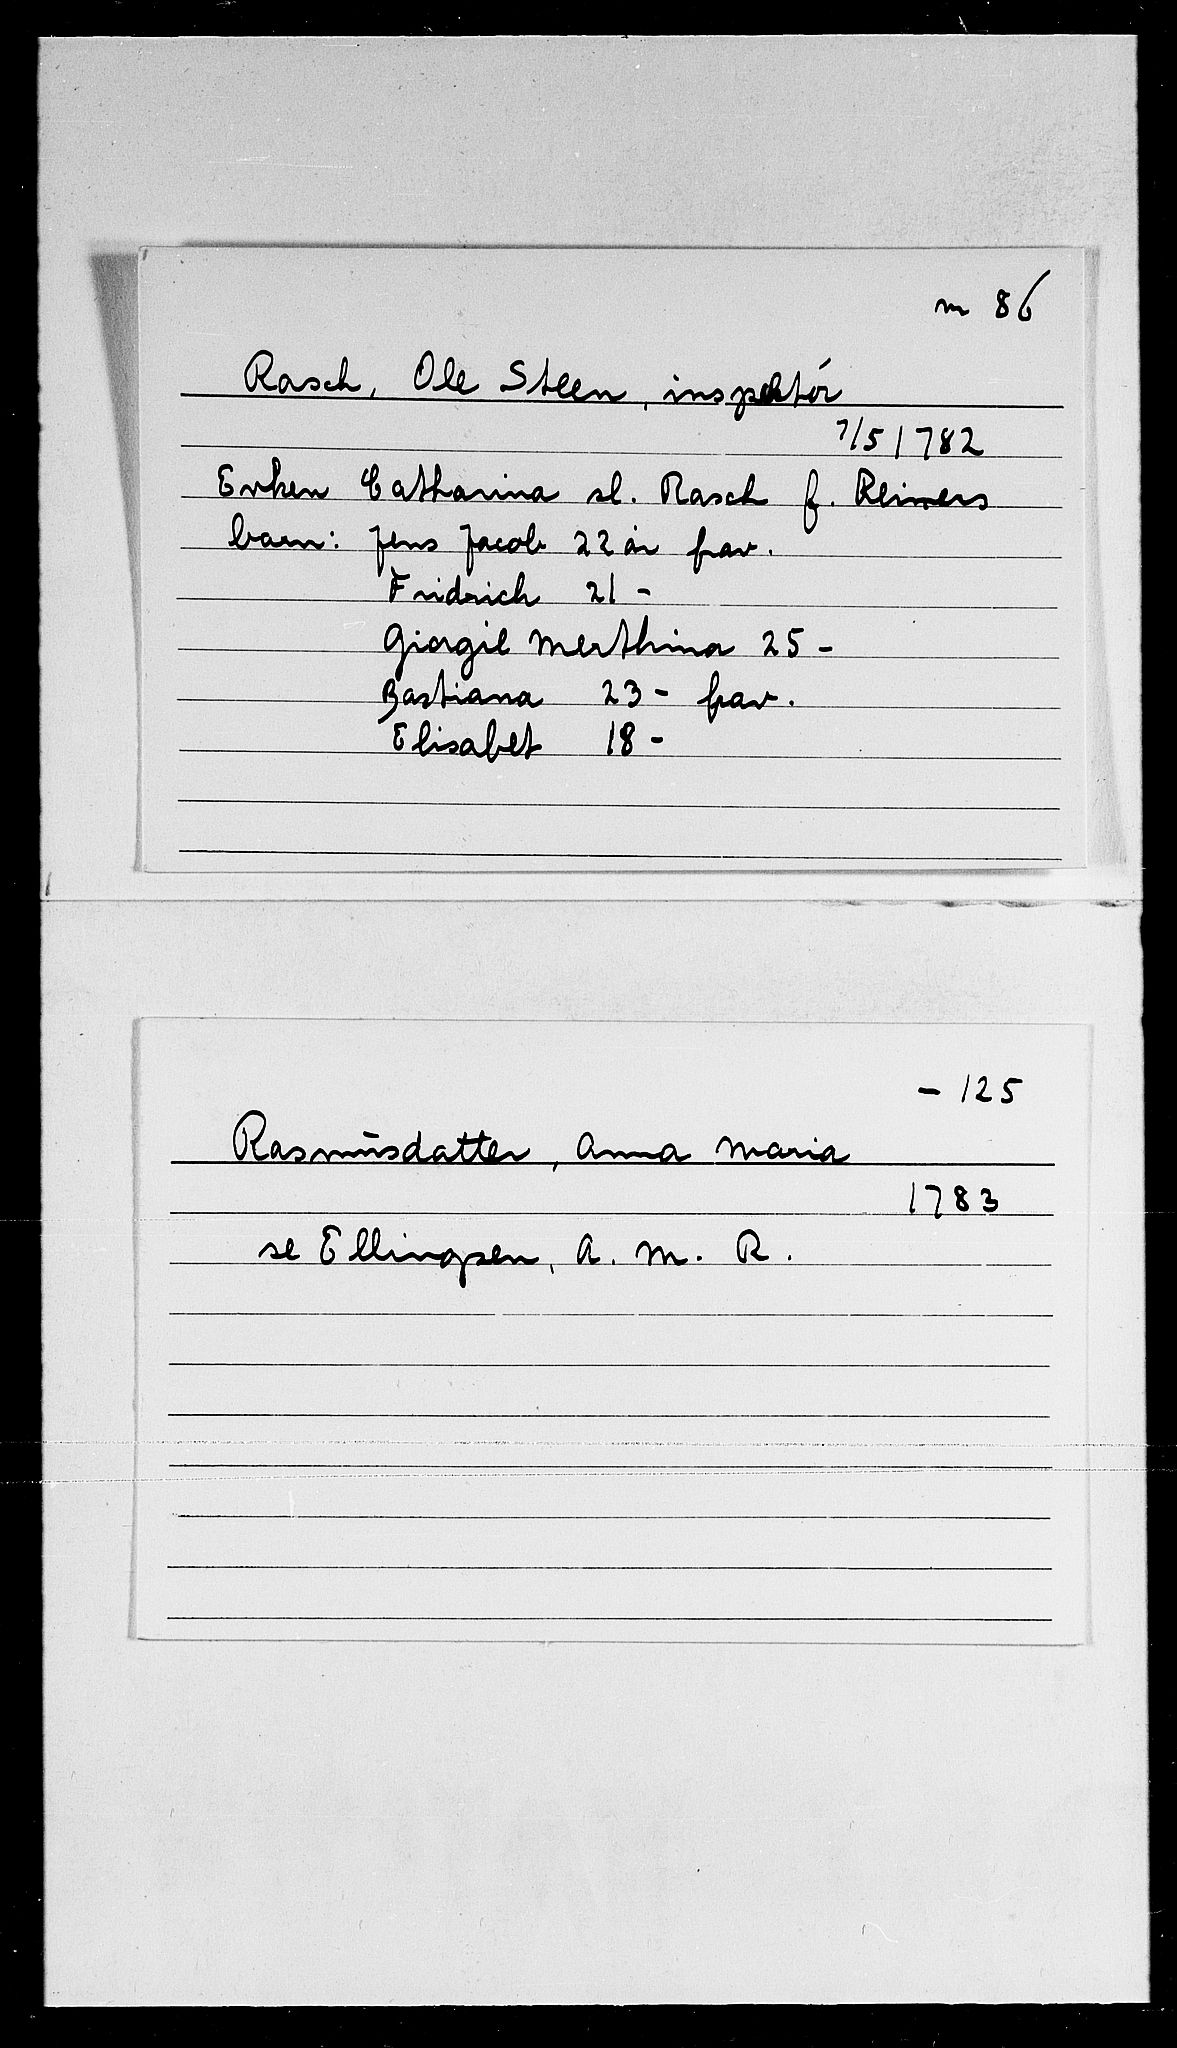 m 86
Rasch, Ole Steen, inspektör
7/5 1782
Enken Catharina sl. Rasch f. Reimers
barn: Jens Jacob 22 år frav.
Fridrich 21 -
Giorgie Merthina 25 -
Bastiana 23 - frav.
Elisabet 18 -
- 125
Rasmusdatter, Anna Maria
1783
se Ellingsen, A. M. R.